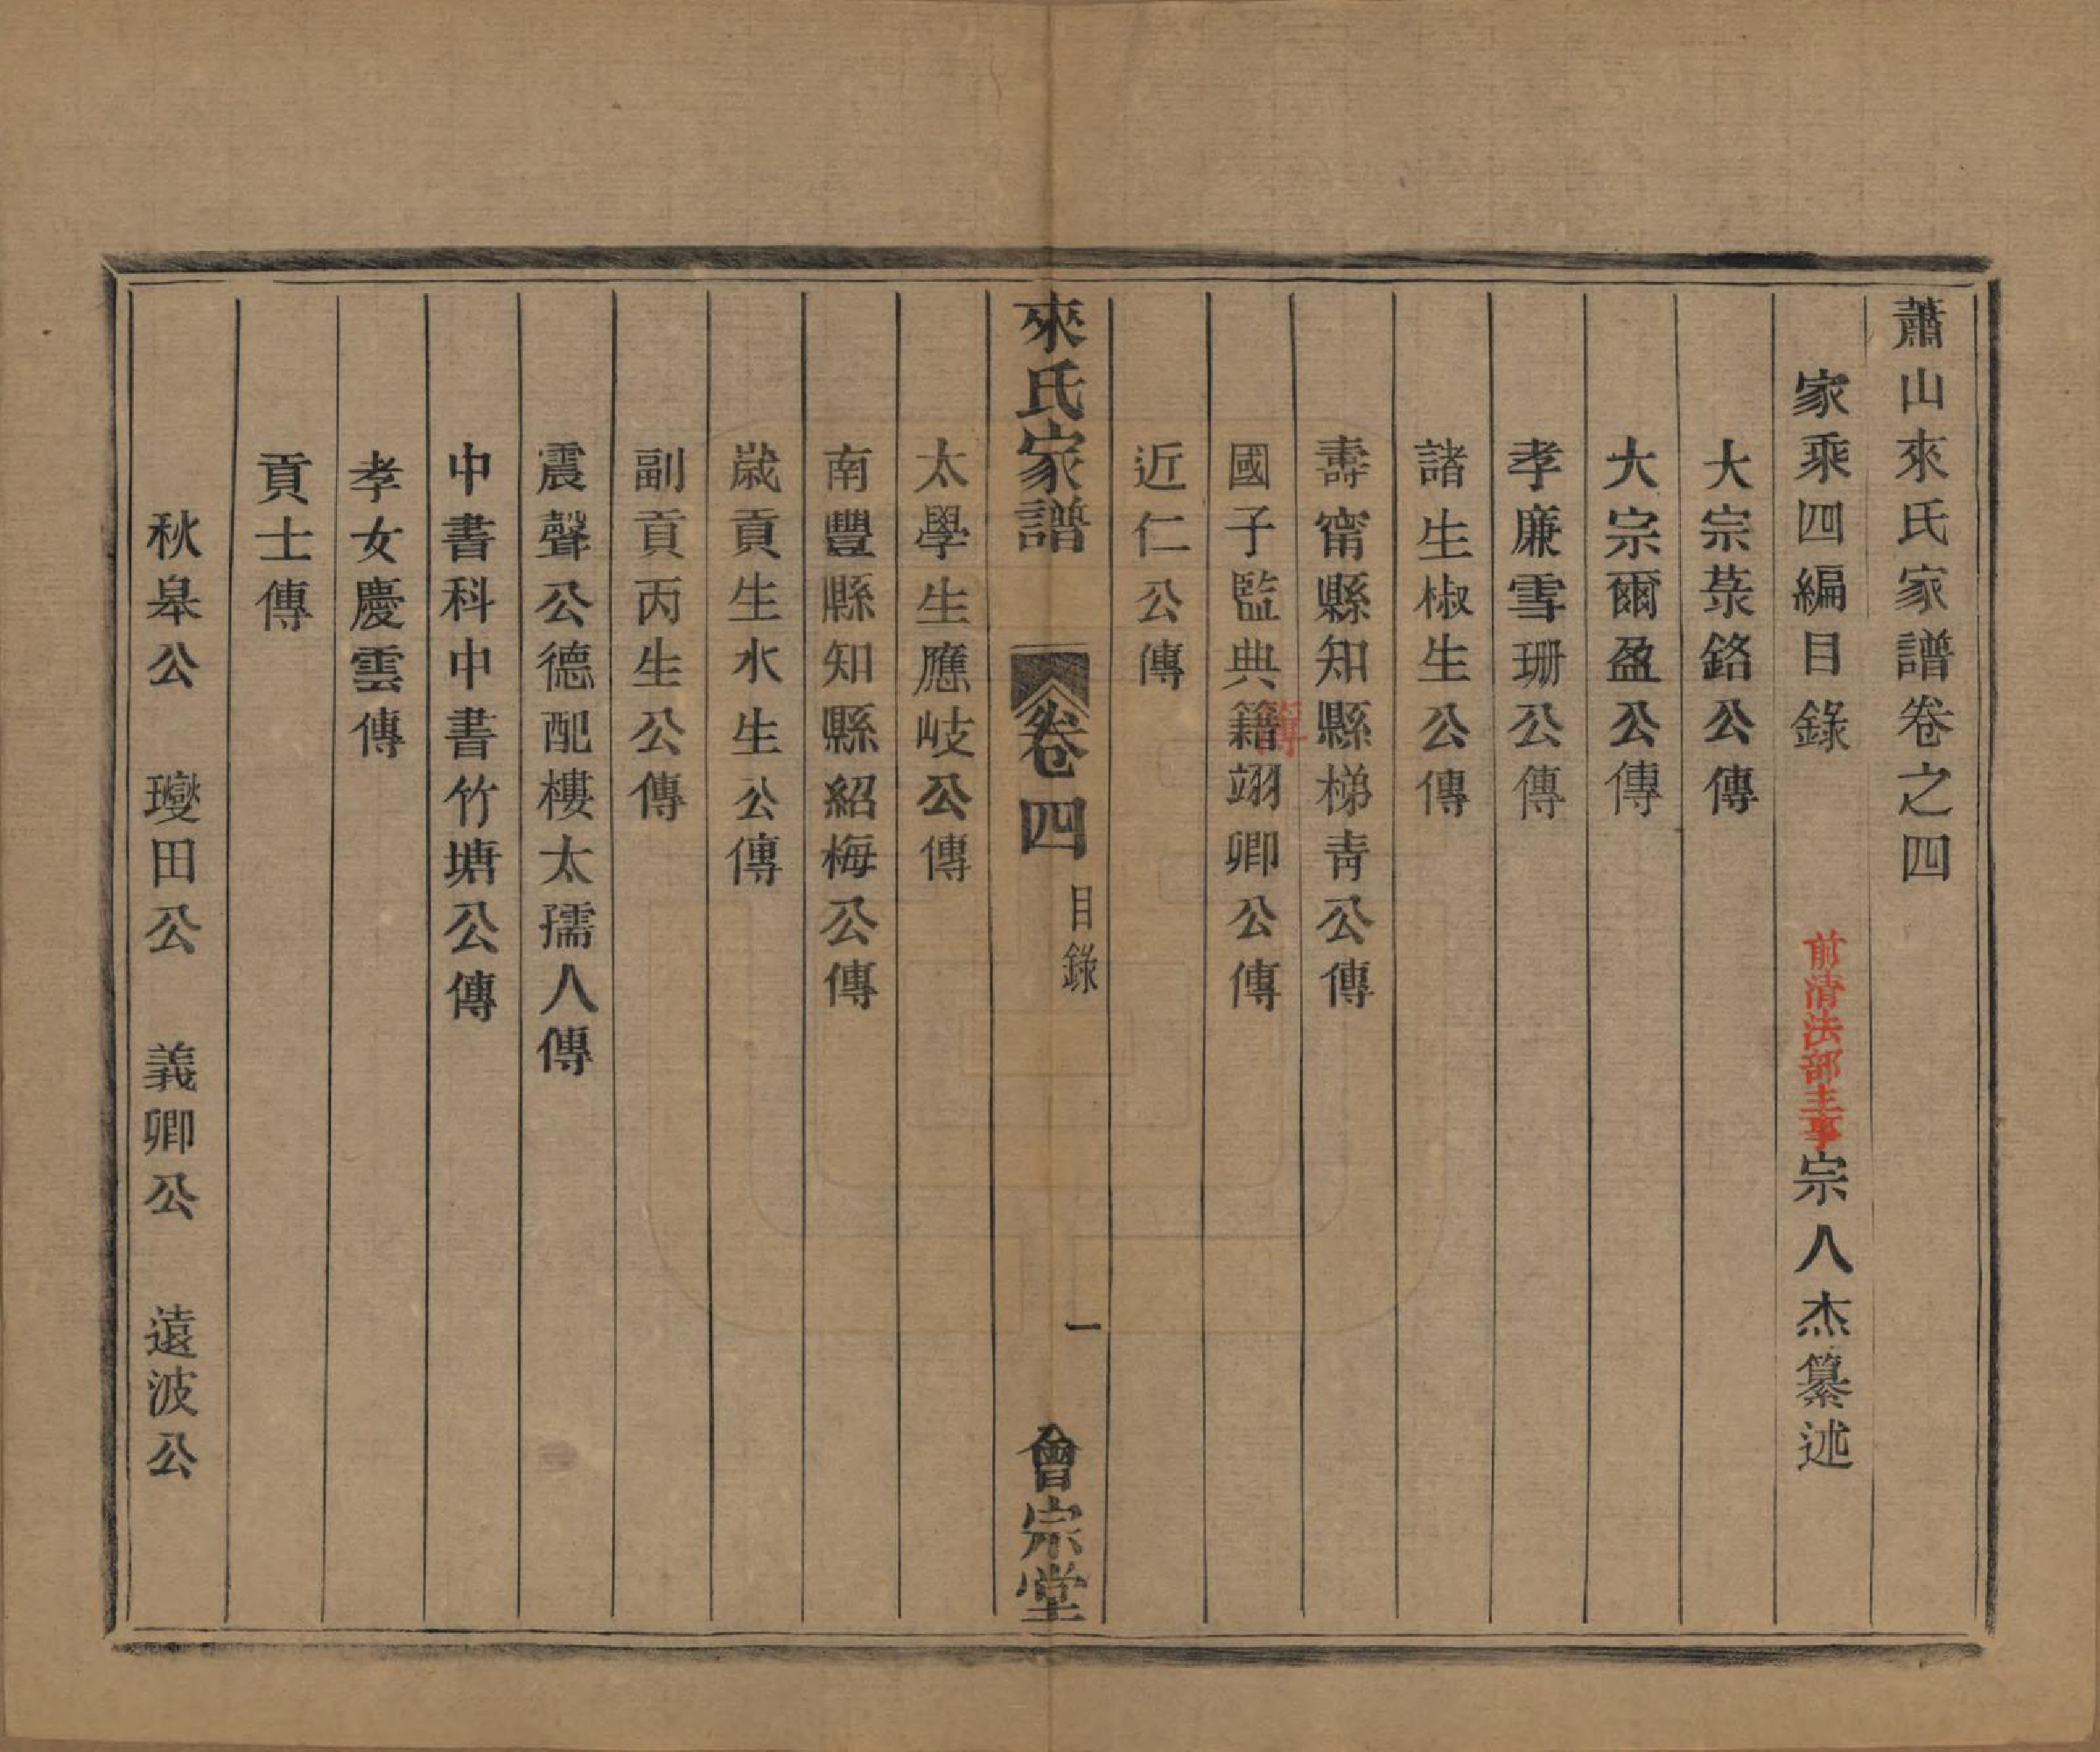 蕭山來氏家譜卷之四
家乘四編目錄 前清法部主事宗人杰纂述
大宗菉銘公傳
大宗爾盈公傳
孝廉雪珊公傳
諸生椒生公傳
壽甯縣知縣梯靑公傳
國子監典籍簿翊卿公傳
近仁公傳
來氏家譜 卷四 目錄 一 會宗堂
太學生應岐公傳
南豐縣知縣紹梅公傳
歲貢生水生公傳
副貢丙生公傳
震聲公德配樓太孺人傳
中書科中書竹塘公傳
孝女慶雲傳
貢士傳
秋皋公 璦田公 義卿公 遠波公